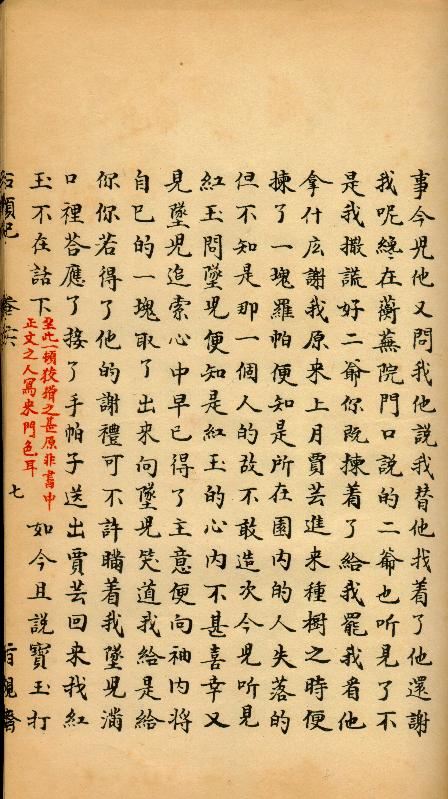 事今兒他又問我他說我替他找着了他還謝
我呢纔在蘅蕪院門口說的二爺也聽見了不
是我撒謊好二爺你既揀着了給我罷我看他
拿什庅謝我原來上月賈芸進來種樹之時便
揀了一塊羅帕便知是所在園內的人失落的
但不知是那一個人的故不敢造次今兒聽見
紅玉問墜兒便知是紅玉的心內不甚喜幸又
見墜兒追索心中早已得了主意便向袖內將
自已的一塊取了出來向墜兒笑道我給是給
你你若得了他的謝禮可不許瞞着我墜兒滿
口裡荅應了接了手帕子送出賈芸回來找紅
玉不在話下
至此一頓狡猾之甚原非書中
正文之人寫來門色耳
如今且說寶玉打
石頭記
七
脂硯齋